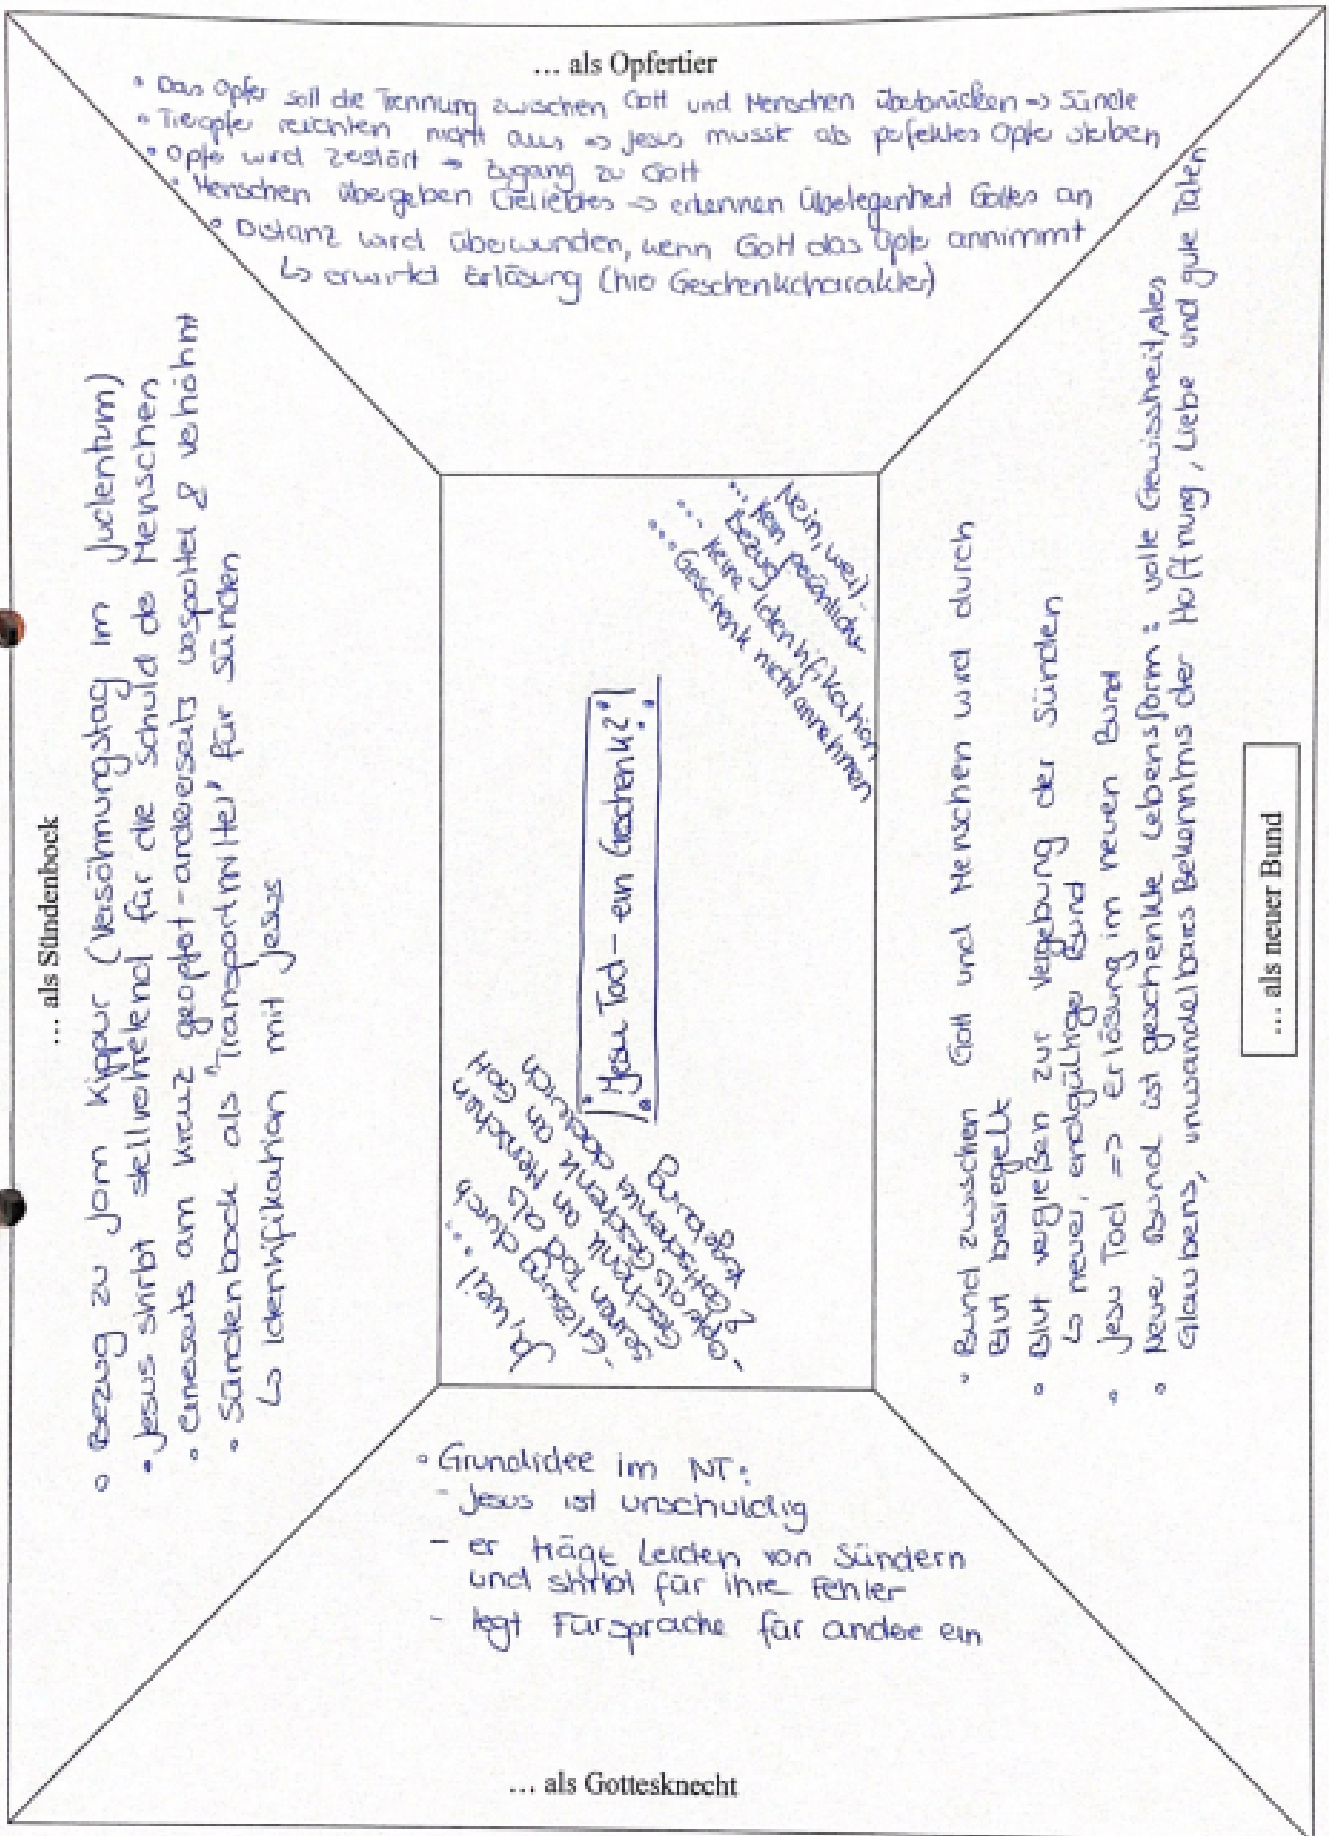 ... als Opfertier
• Das Opfer soll die Trennung zwischen Gott und Menschen überbrücken => Sünde
• Tieropfer reichten nicht aus => Jesus musste als perfektes Opfer sterben
• Opfer wird zerstört → Zugang zu Gott
• Menschen übergeben Geliebtes => erkennen Überlegenheit Gottes an
• Distanz wird überwunden, wenn Gott das Opfer annimmt
↳ erwirkt Erlösung (hier Geschenkcharakter)
... als Sündenbock
• Bezug zu Jom Kippur (Versöhnungstag im Judentum)
• Jesus stirbt stellvertretend für die Schuld der Menschen
• einerseits am Kreuz geopfert - andererseits verspottet & verhöhnt
• Sündenbock als "Transportmittel" für Sünden
↳ Identifikation mit Jesus
Jesu Tod - ein Geschenk?!
Ja, weil ...
- Erlösung durch
seinen Tod als
Geschenk an Menschen
- Opfer als Geschenk an Gott
& Gottesknecht dadurch
Vergebung
Nein, weil
... kein persönlicher
Bezug
... keine Identifikation
... Geschenk nicht annehmen
• Bund zwischen Gott und Menschen wird durch
Blut besiegelt
• Blut vergießen zur Vergebung der Sünden
↳ neuer, endgültiger Bund
• Jesu Tod => Erlösung im neuen Bund
• Neue Bund ist geschenkte Lebensform: volle Gewissheit des
Glaubens, unwandelbares Bekenntnis der Hoffnung, Liebe und gute Taten
... als neuer Bund
• Grundidee im NT:
- Jesus ist unschuldig
- er trägt Leiden von Sündern
und stirbt für ihre Fehler
- legt Fürsprache für andere ein
... als Gottesknecht